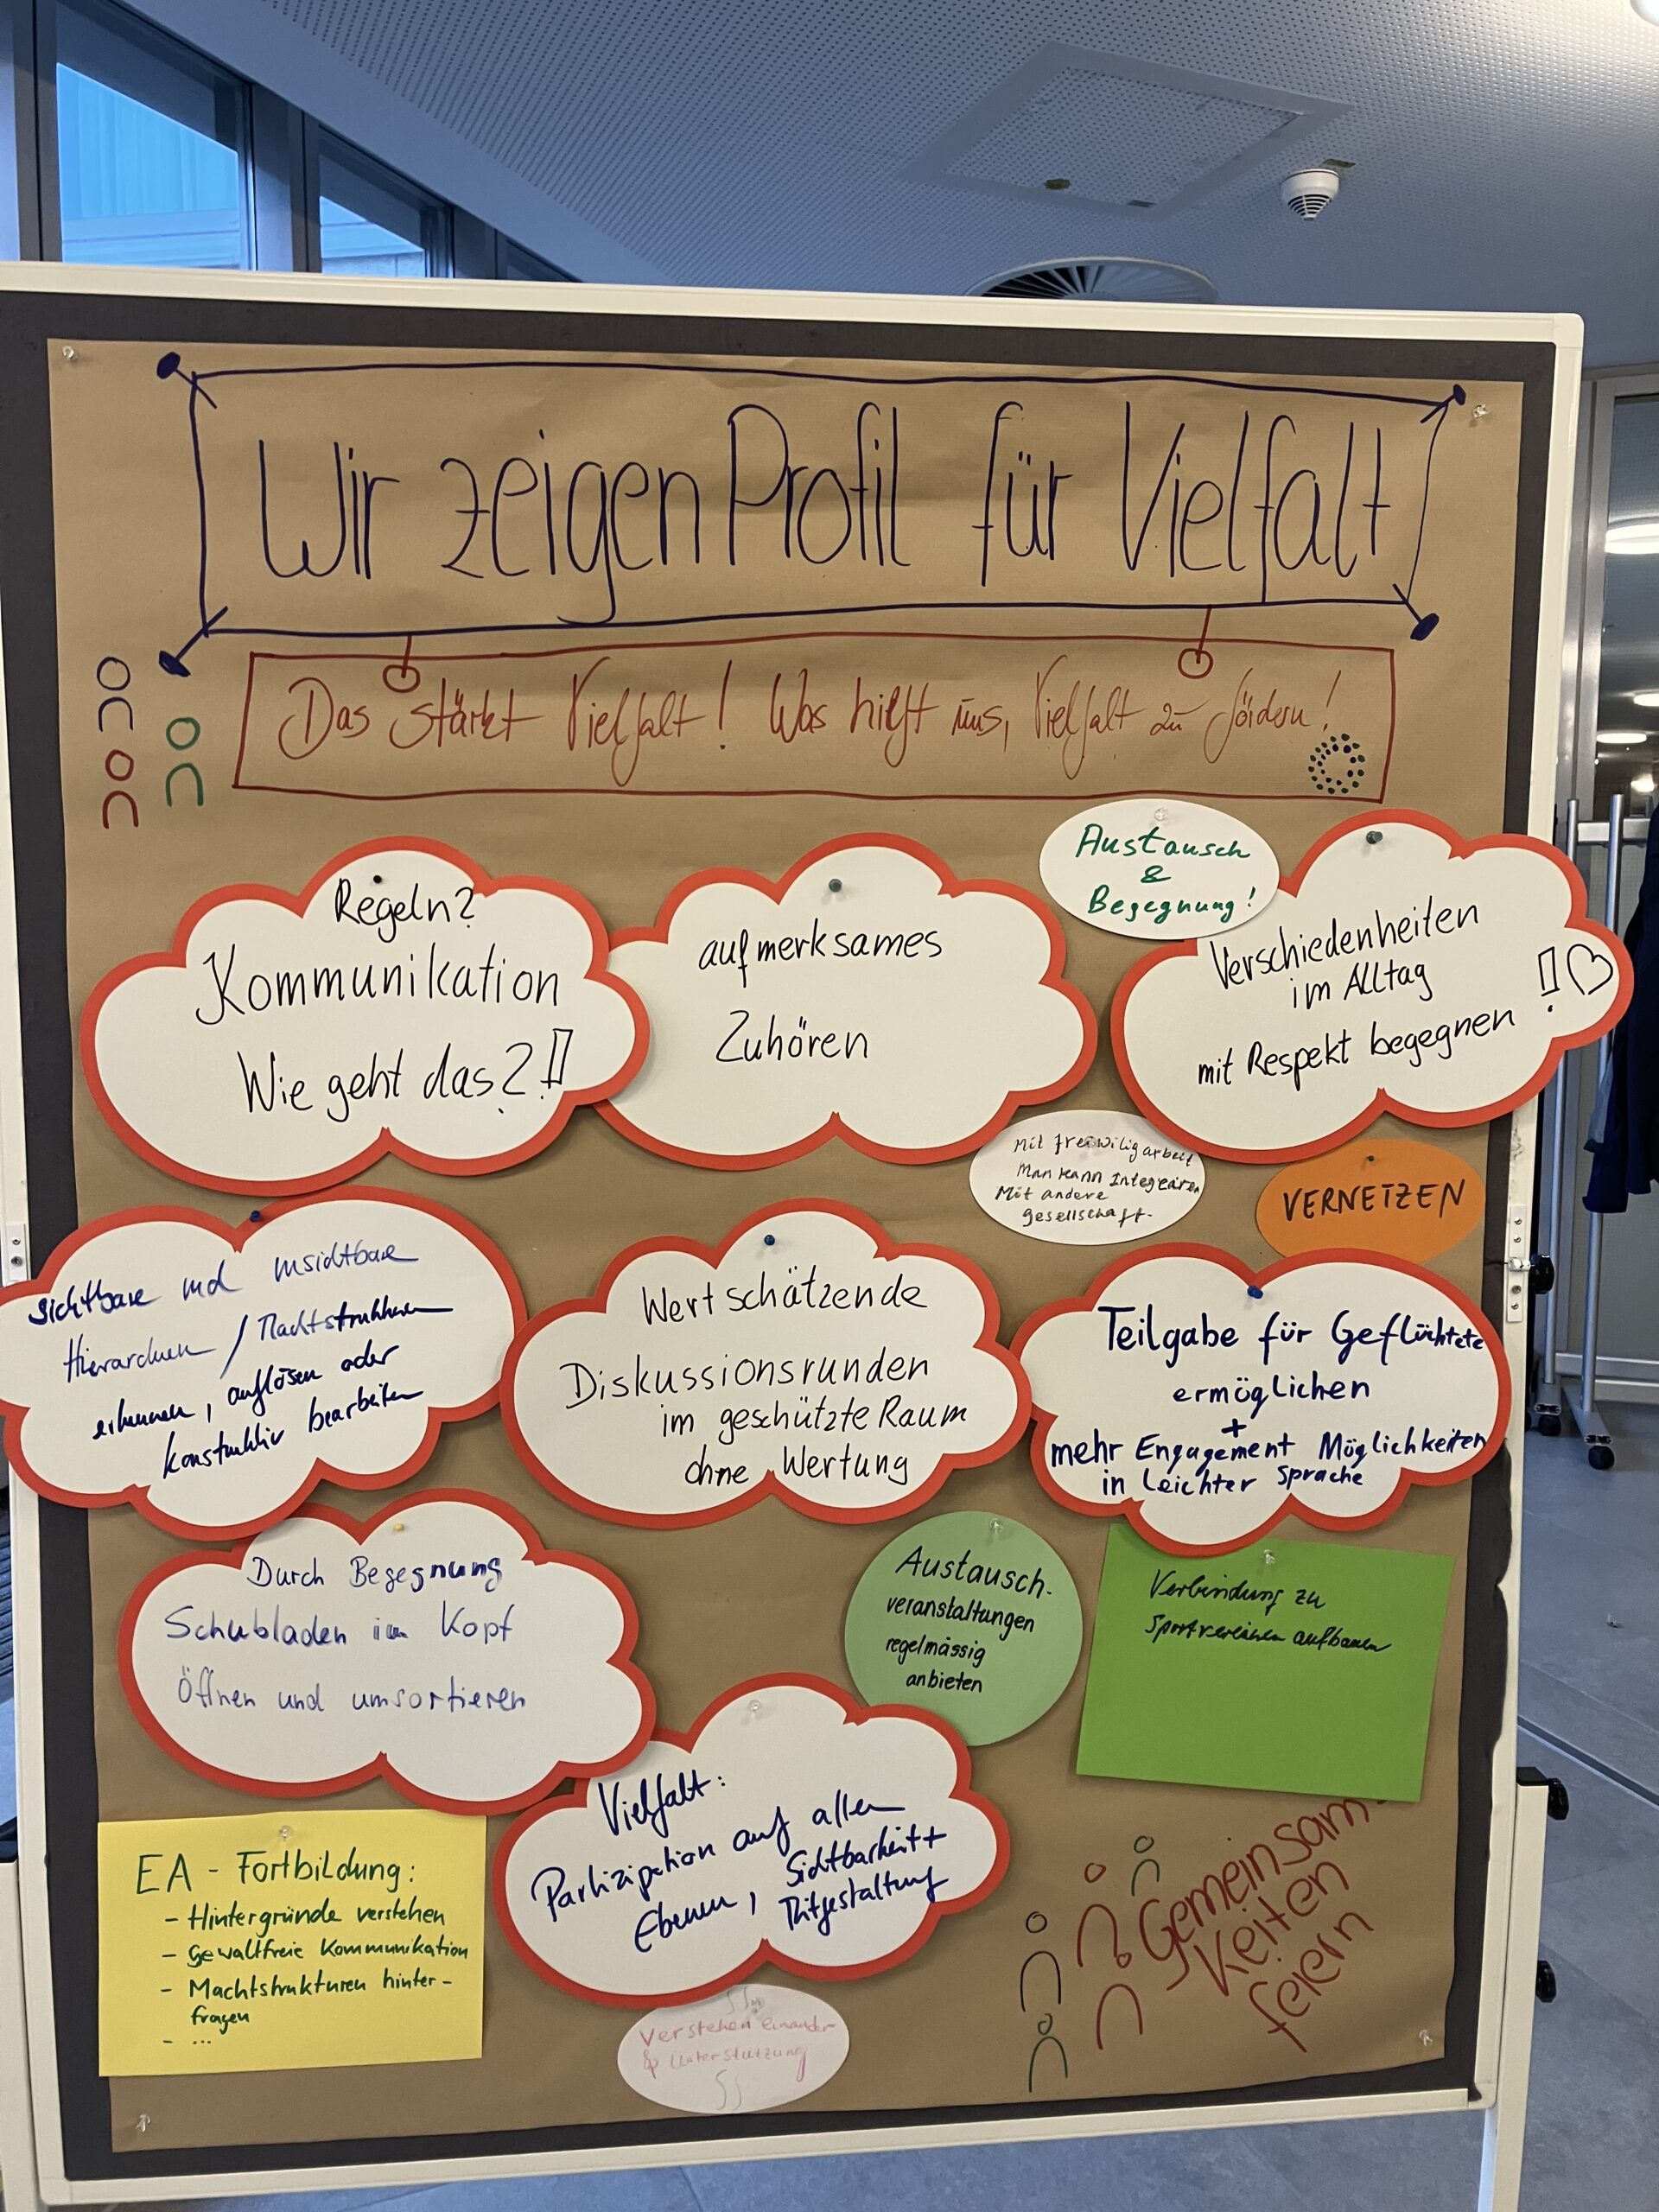 Wir zeigen Profil für Vielfalt
Das stärkt Vielfalt! Was hilft uns, Vielfalt zu fördern!
Austausch
&
Begegnung!
Regeln?
Kommunikation
Wie geht das?!
aufmerksames
Zuhören
Verschiedenheiten
im Alltag
mit Respekt begegnen!
Mit freiwiligarbeit
Man kann Integrieren
Mit andere
gesellschaft.
VERNETZEN
Sichtbare und unsichtbare
Hierarchien / Machtstrukturen
erkennen, auflösen oder
konstruktiv bearbeiten
Wertschätzende
Diskussionsrunden
im geschützte Raum
ohne Wertung
Teilgabe für Geflüchtete
ermöglichen
+
mehr Engagement Möglichkeiten
in Leichter Sprache
Durch Begegnung
Schubladen im Kopf
Öffnen und umsortieren
Austausch-
veranstaltungen
regelmässig
anbieten
Verbindung zu
Sportvereinen aufbauen
Vielfalt:
Partizipation auf allen
Ebenen, Sichtbarkeit +
Mitgestaltung
EA - Fortbildung:
- Hintergründe verstehen
- gewaltfreie Kommunikation
- Machtstrukturen hinter-
fragen
- ...
Verstehen einander
& Unterstützung
Gemeinsam-
Keiten
feiern